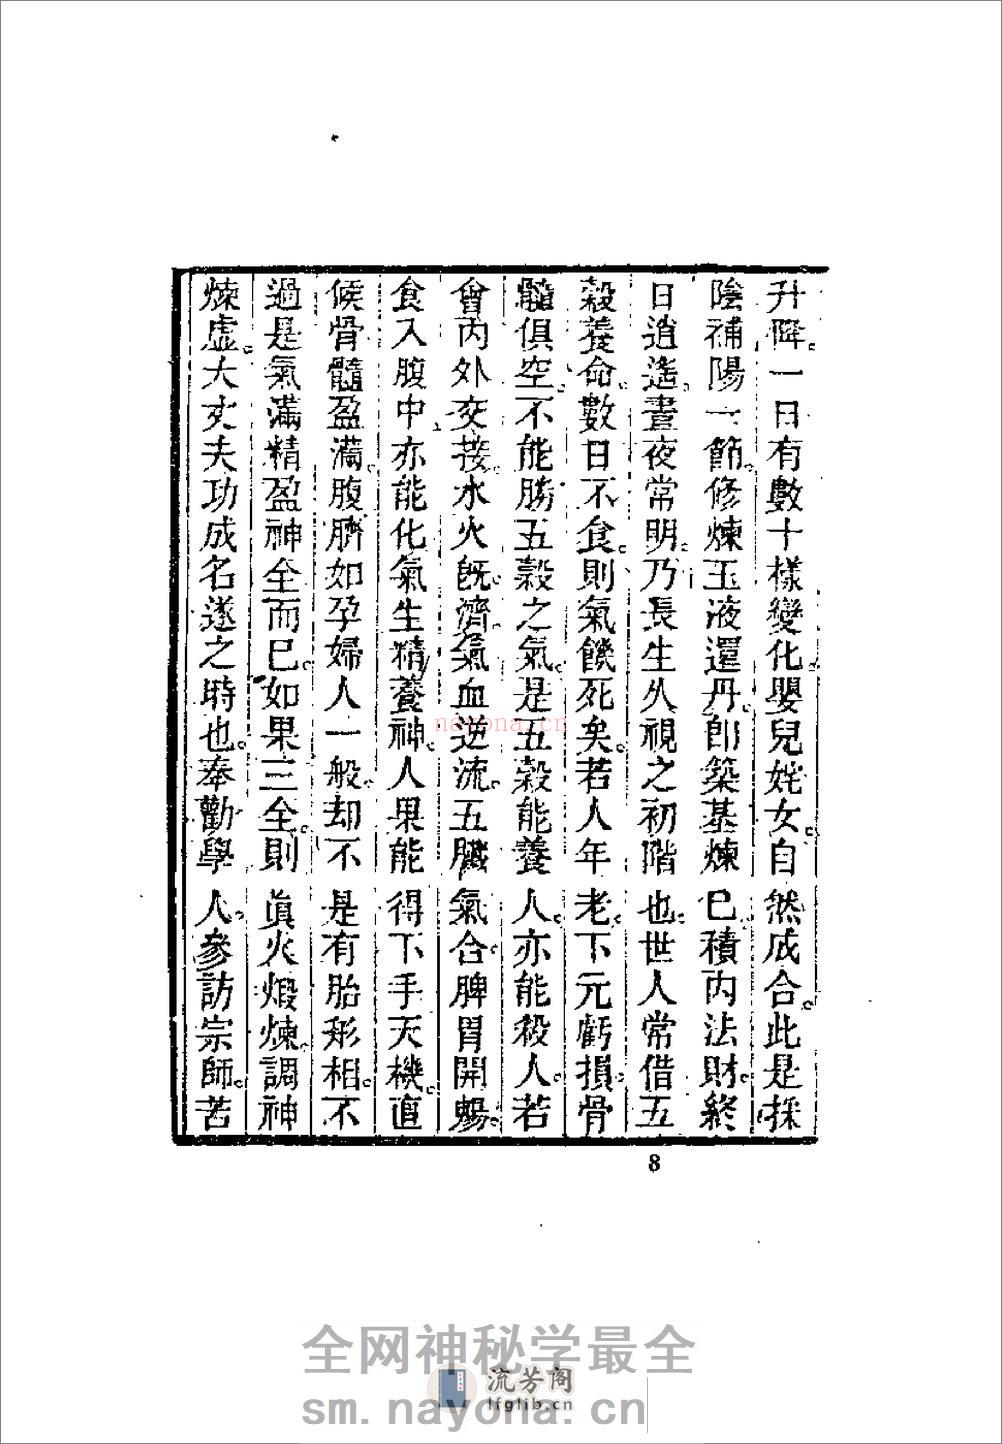 升降。一日有數十樣變化。嬰兒姹女。自然成合。此是採
陰補陽一節。修煉玉液還丹。即築基煉已。積內法財。終
日逍遙。晝夜常明。乃長生久視之初階也。世人常借五
穀養命。數日不食。則氣餓死矣。若人年老。下元虧損。骨
髓俱空。不能勝五穀之氣。是五穀能養人。亦能殺人。若
會內外交接。水火既濟。氣血逆流。五臟氣合。脾胃開暢。
食入腹中。亦能化氣生精養神。人果能得下手天機。直
候骨髓盈滿。腹臍如孕婦人一般。却不是有胎形相。不
過是氣滿精盈神全而已。如果三全。則眞火煅煉。調神
煉虛。大丈夫功成名遂之時也。奉勸學人。參訪宗師。苦
8
nayona.cn
全网神秘学最全
流芳阁
lfglib.cn
sm.nayona.cn